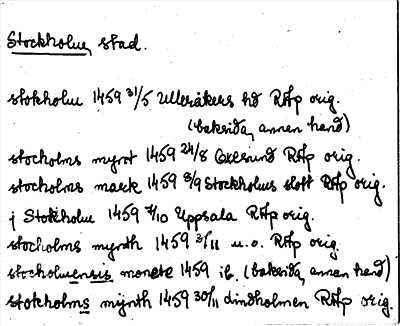 Stockholm, stad.
stokholm 1459 31/5 Ulleråkers hd RAp orig.
(baksida, annan hand)
stocholms mynt 1459 24/8 Öresund RAp orig.
stocholms mark 1459 3/9 Stockholms slott RAp orig.
j Stokholm 1459 7/10 Uppsala RAp orig.
stocholms mynth 1459 3/11 u.o. RAp orig.
stocholmensis monete 1459 ib. (baksida, annan hand)
stokholms mÿnth 1459 30/11 Lindholmen RAp orig.